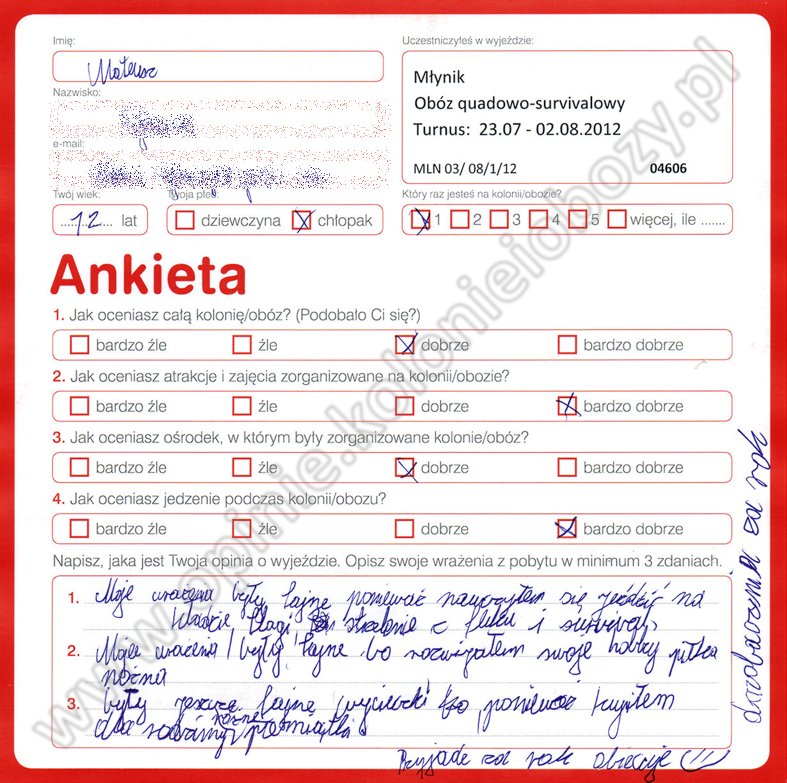 Imię:
Mateusz
Nazwisko:
e-mail:
Twój wiek:
12 lat
Twoja płeć:
dziewczyna chłopak
Uczestniczyłeś w wyjeździe:
Młynik
Obóz quadowo-survivalowy
Turnus: 23.07 - 02.08.2012
MLN 03/ 08/1/12 04606
Który raz jesteś na kolonii/obozie?
1 2 3 4 5 więcej, ile .......
Ankieta
1. Jak oceniasz całą kolonię/obóz? (Podobało Ci się?)
bardzo źle źle dobrze bardzo dobrze
2. Jak oceniasz atrakcje i zajęcia zorganizowane na kolonii/obozie?
bardzo źle źle dobrze bardzo dobrze
3. Jak oceniasz ośrodek, w którym były zorganizowane kolonie/obóz?
bardzo źle źle dobrze bardzo dobrze
4. Jak oceniasz jedzenie podczas kolonii/obozu?
bardzo źle źle dobrze bardzo dobrze
Napisz, jaka jest Twoja opinia o wyjeździe. Opisz swoje wrażenia z pobytu w minimum 3 zdaniach.
1. Moje wrażenia były fajne ponieważ nauczyłem się jeździć na
strzelanie z łuku i
2. Moje wrażenia były fajne bo rozwijałem swoje hobby piłka
nożna
3. były jeszcze fajne wycieczki bo ponieważ kupiłem
dla rodziny różne pamiątki
Przyjadę za rok obiecuję
dozobaczenia za rok
www.opinie.kolonieiobozy.pl